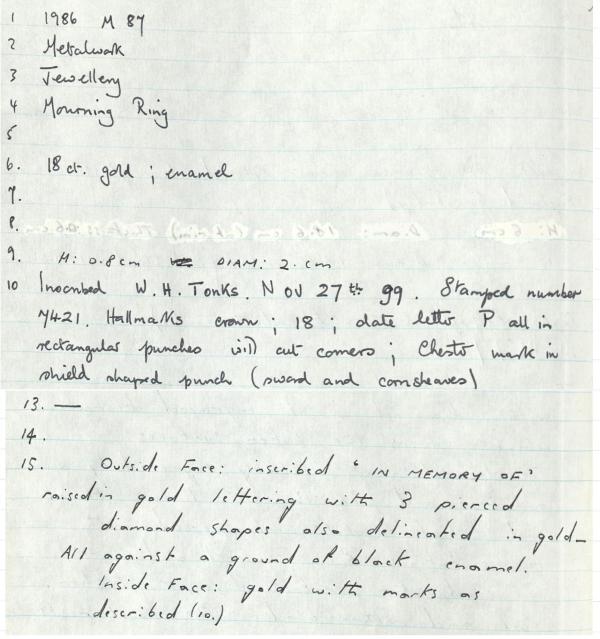 1 1986 M 87
2 Metalwork
3 Jewellery
4 Mourning Ring
5
6. 18 ct. gold ; enamel
7.
8.
9. H: 0.8 cm DIAM: 2. cm
10 Inscribed W. H. Tonks. Nov 27th 99. Stamped number
7421. Hallmarks crown ; 18 ; date letter P all in
rectangular punches with cut corners ; Chester mark in
shield shaped punch (sword and cornsheaves)
13. —
14.
15. Outside Face: inscribed ' IN MEMORY OF '
raised in gold lettering with 3 pierced
diamond shapes also delineated in gold-
All against a ground of black enamel.
Inside Face: gold with marks as
described (10.)